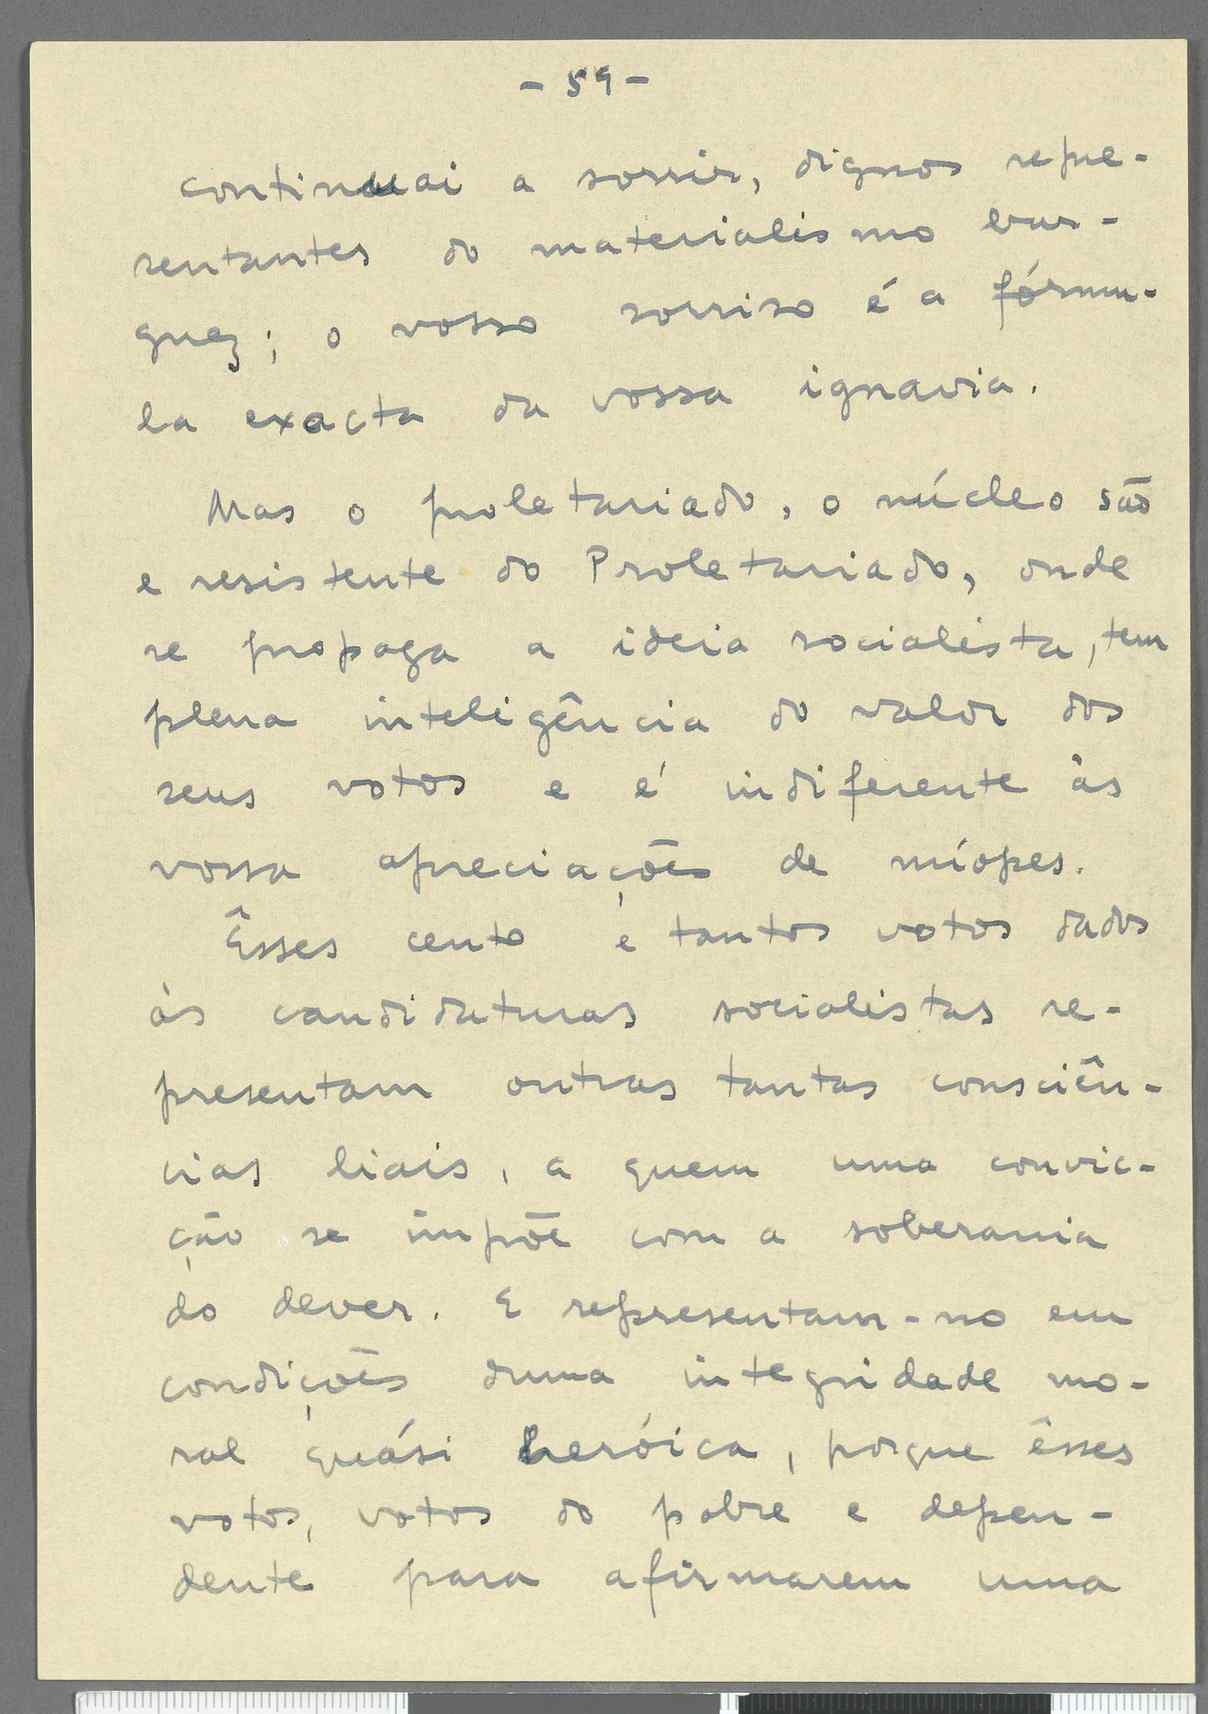 - 59 -
continuai a sorrir, dignos repre-
sentantes do materialismo bur-
guez; o vosso sorriso é a fórmu-
la exacta da vossa ignavia.
Mas o proletariado, o núcleo são
e resistente do Proletariado, onde
se propaga a ideia socialista, tem
plena inteligência do valor dos
seus votos e é indiferente às
vossa apreciações de míopes.
Êsses cento e tantos votos dados
às candidaturas socialistas re-
presentam outras tantas consciên-
cias liais, a quem uma convic-
ção se impõe com a soberania
do dever. E representam-no em
condições duma integridade mo-
ral quási heróica, porque êsses
votos, votos do pobre e depen-
dente para afirmarem uma